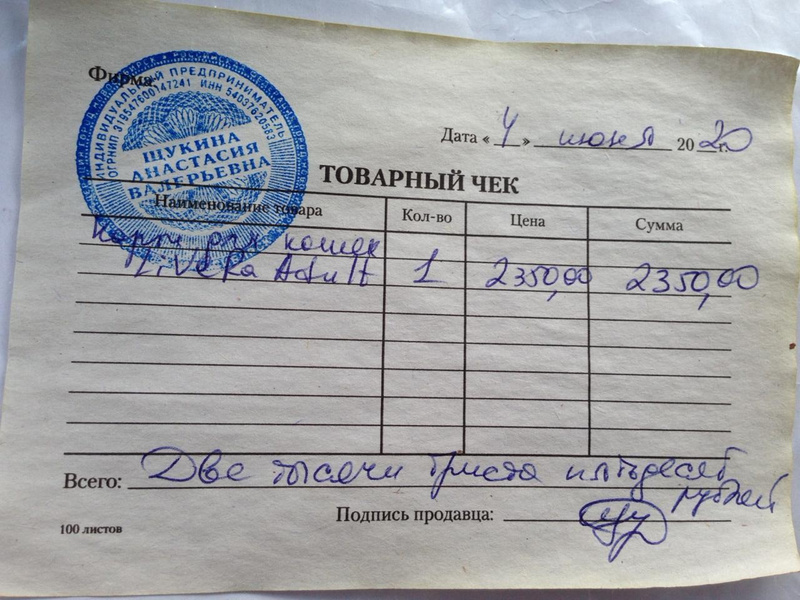 Фирма
ИНДИВИДУАЛЬНЫЙ ПРЕДПРИНИМАТЕЛЬ
ОГРНИП 319547600147241 ИНН 54037620583
ЩУКИНА
АНАСТАСИЯ
ВАЛЕРЬЕВНА
Дата «4» июня 2020 г.
ТОВАРНЫЙ ЧЕК
Наименование товара Кол-во Цена Сумма
Корм для кошек
LiVeRa Adult 1 2350,00 2350,00
Всего: Две тысячи триста пятьдесят
рублей
Подпись продавца:
100 листов